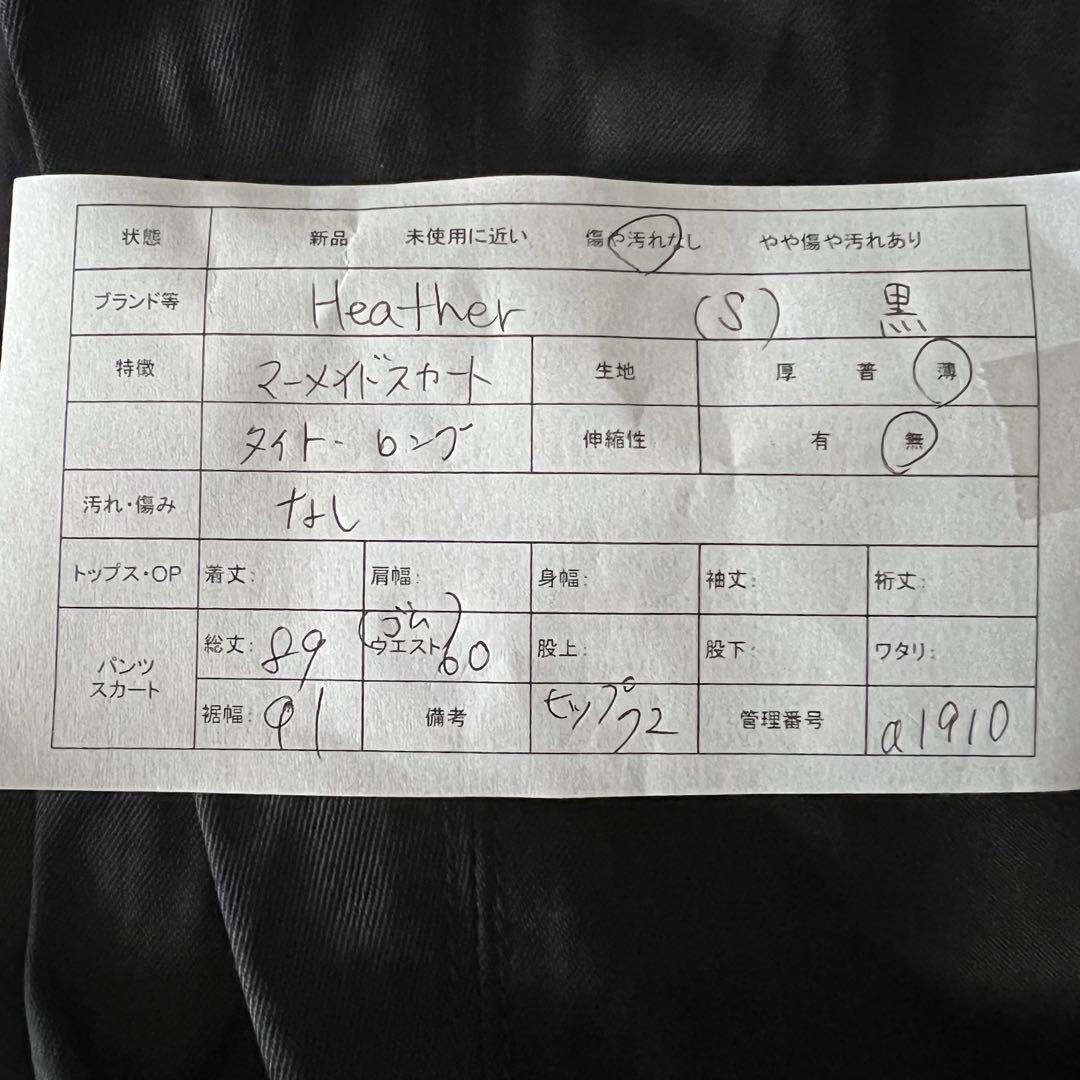 状態 新品 未使用に近い 傷や汚れなし やや傷や汚れあり
ブランド等 Heather (S) 黒
特徴 マーメイドスカート 生地 厚 普 薄
タイト・ロング 伸縮性 有 無
汚れ・傷み なし
トップス・OP 着丈: 肩幅: 身幅: 袖丈: 裄丈:
パンツ スカート 総丈: 89 (ゴム) ウエスト 60 股上: 股下: ワタリ:
裾幅: 91 備考 ヒップ72 管理番号 a1910